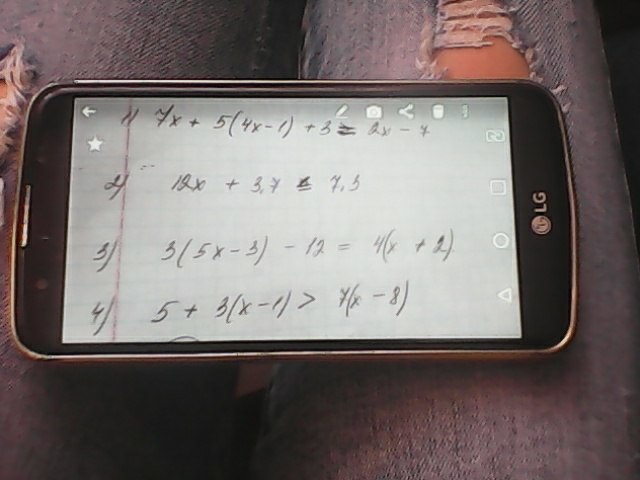 1) 7x + 5(4x-1) + 3 = 2x - 7
2) 12x + 3,7 ≤ 7,3
3) 3(5x-3) - 12 = 4(x + 2)
4) 5 + 3(x-1) > 7(x - 8)
LG